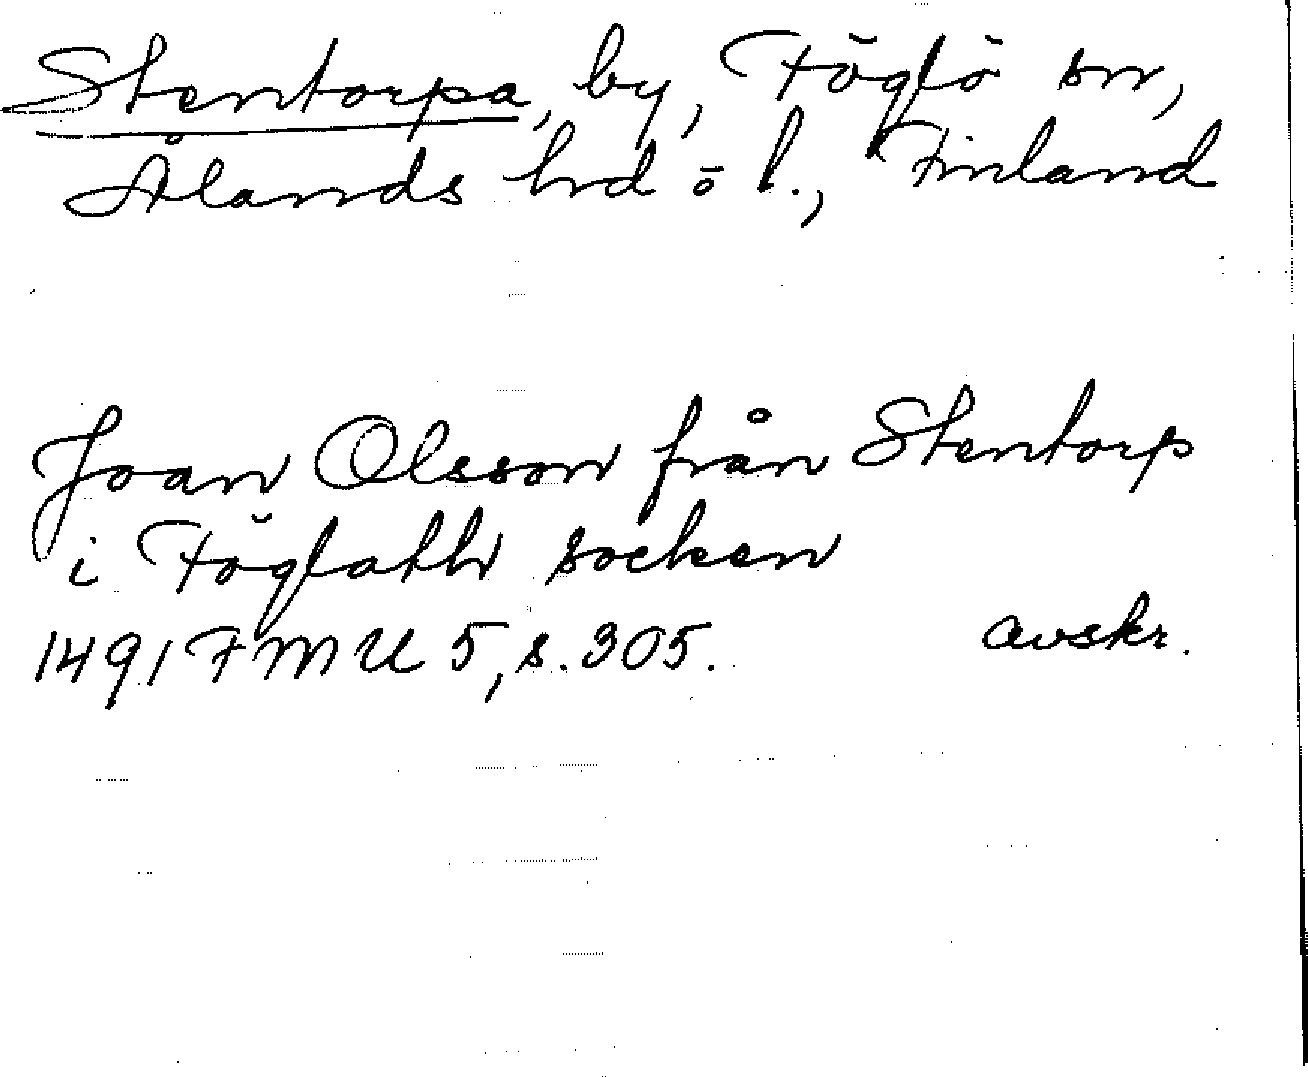 Stentorpa, by, Föglö sn,
Ålands hd o l., Finland
Joan Olsson från Stentorp
i Föglathr socken
1491 FMU 5, s. 305. avskr.